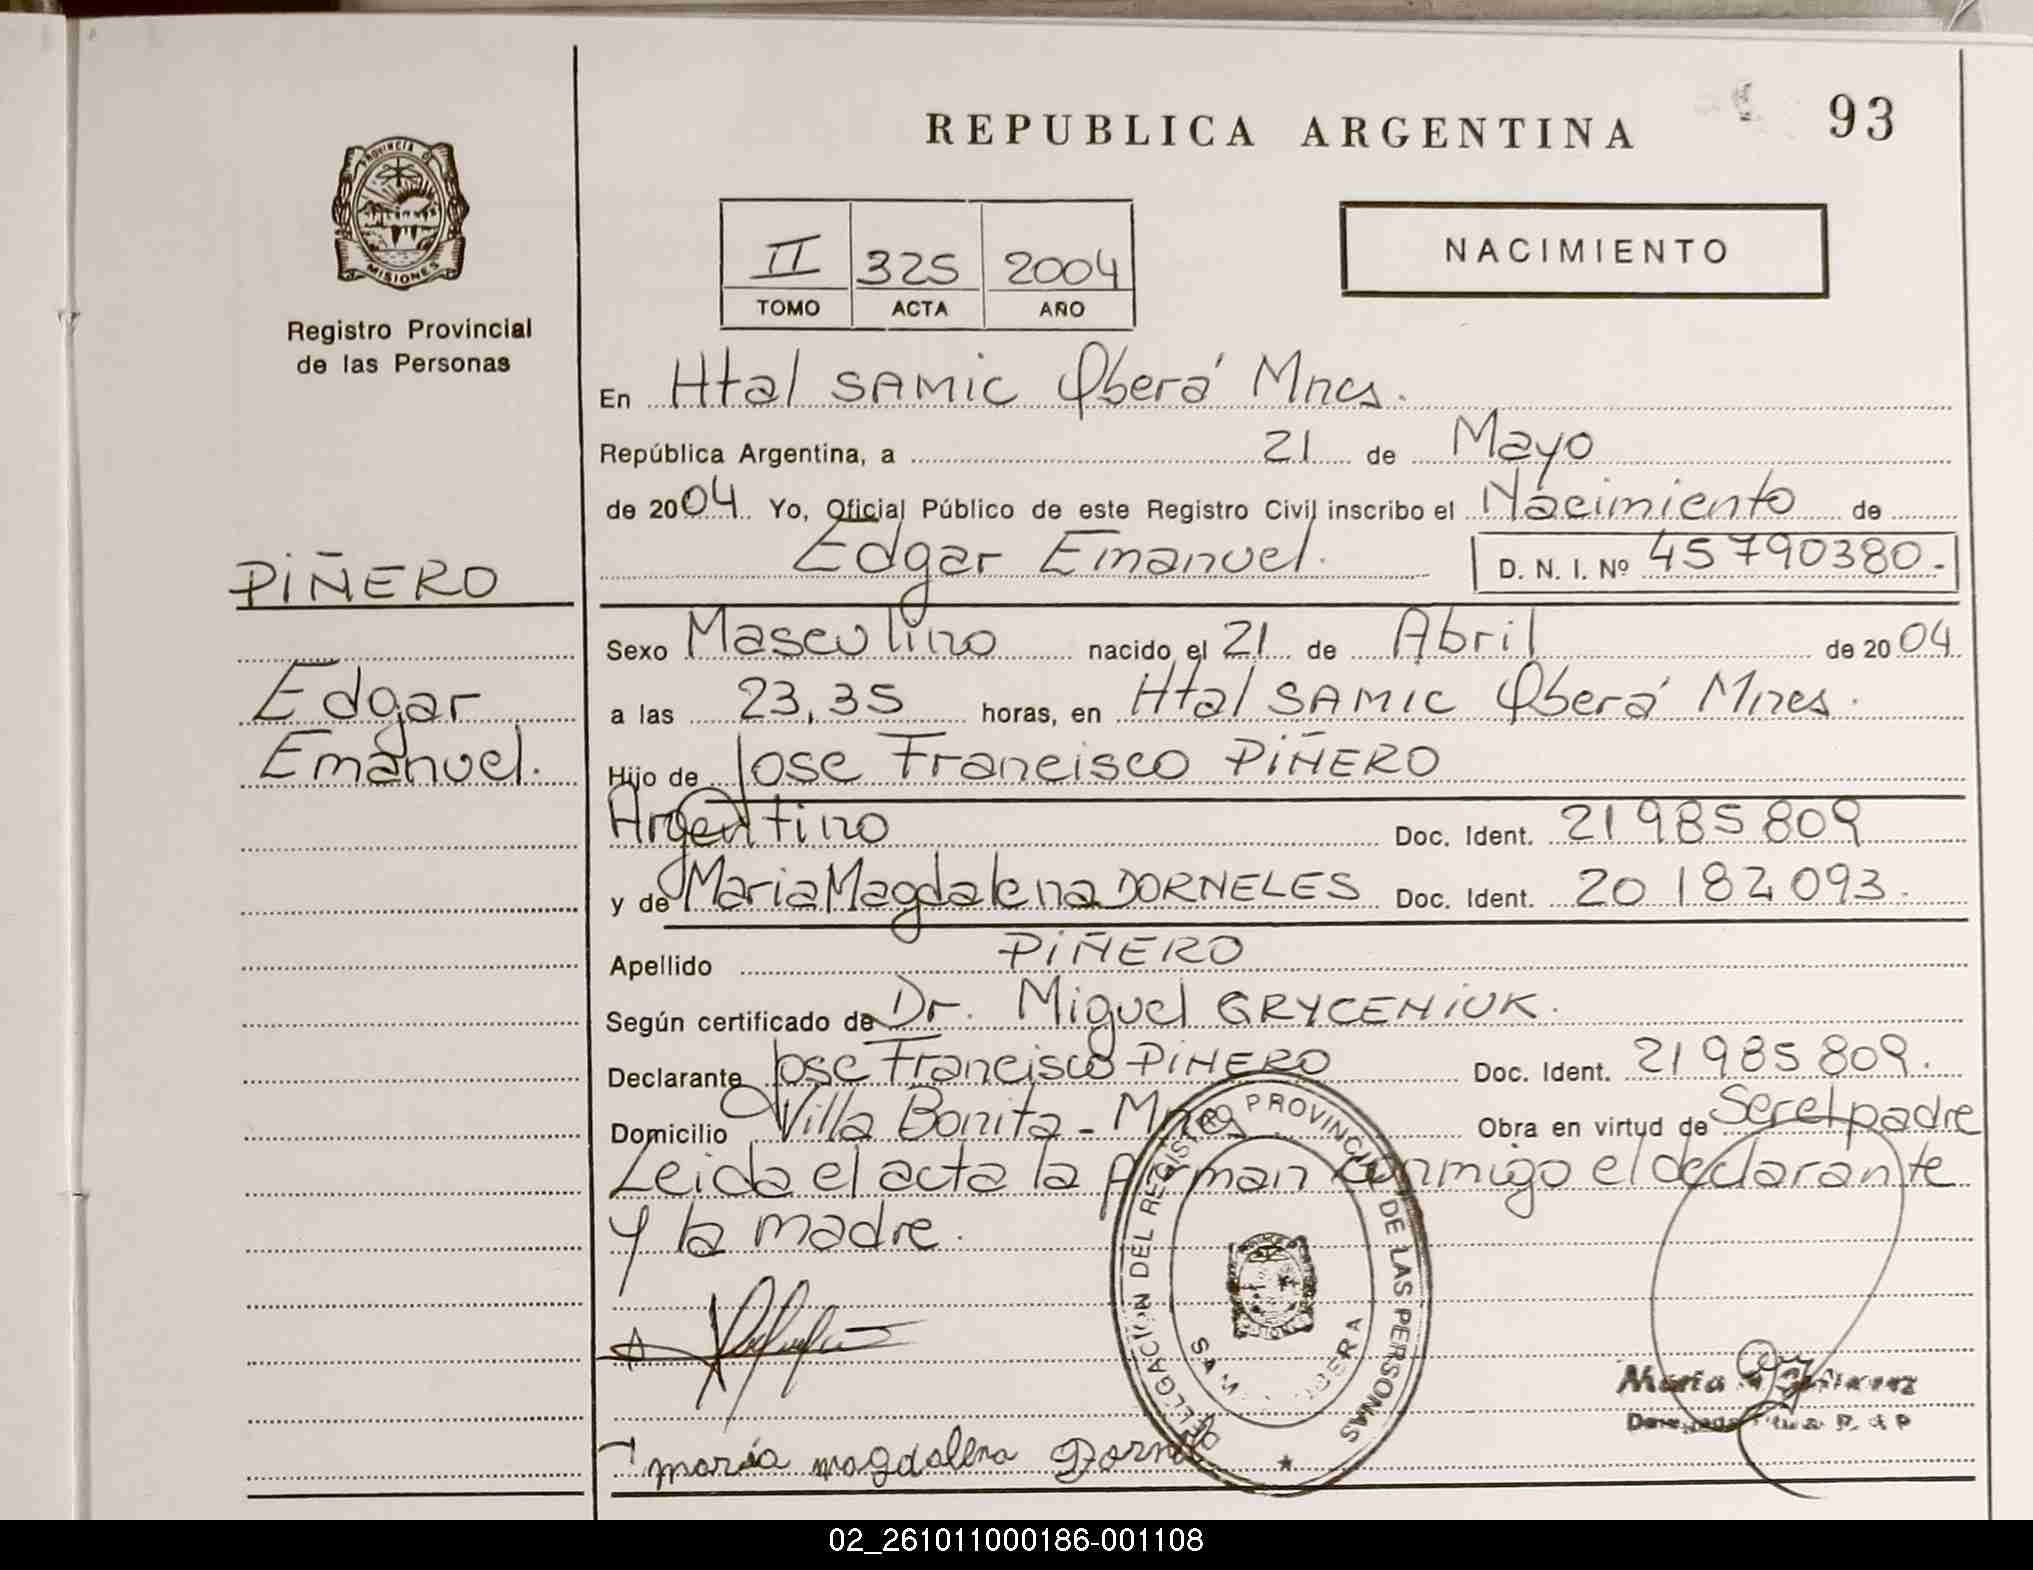 REPUBLICA ARGENTINA
93
PROVINCIA DE
MISIONES
Registro Provincial
de las Personas
II 325 2004
TOMO ACTA AÑO
NACIMIENTO
En Htal SAMIC Oberá Mnes.
República Argentina, a 21 de Mayo
de 2004. Yo, Oficial Público de este Registro Civil inscribo el Nacimiento de
Edgar Emanuel. D. N. I. Nº 45790380.-
PIÑERO
Edgar
Emanuel.
Sexo Masculino nacido el 21 de Abril de 2004
a las 23,35 horas, en Htal SAMIC Oberá Mnes.
Hijo de Jose Francisco PIÑERO
Argentino Doc. Ident. 21985809
y de Maria Magdalena DORNELES Doc. Ident. 20182093.
Apellido PIÑERO
Según certificado de Dr. Miguel GRYCENIUK.
Declarante Jose Francisco PIÑERO Doc. Ident. 21985809.
Domicilio Villa Bonita - Mnes Obra en virtud de Ser el padre
Leida el acta la firman conmigo el declarante
y la madre.
DELEGACION DEL REGISTRO PROVINCIAL DE LAS PERSONAS
OBERA
Maria
maría magdalena Dorne
02_261011000186-001108